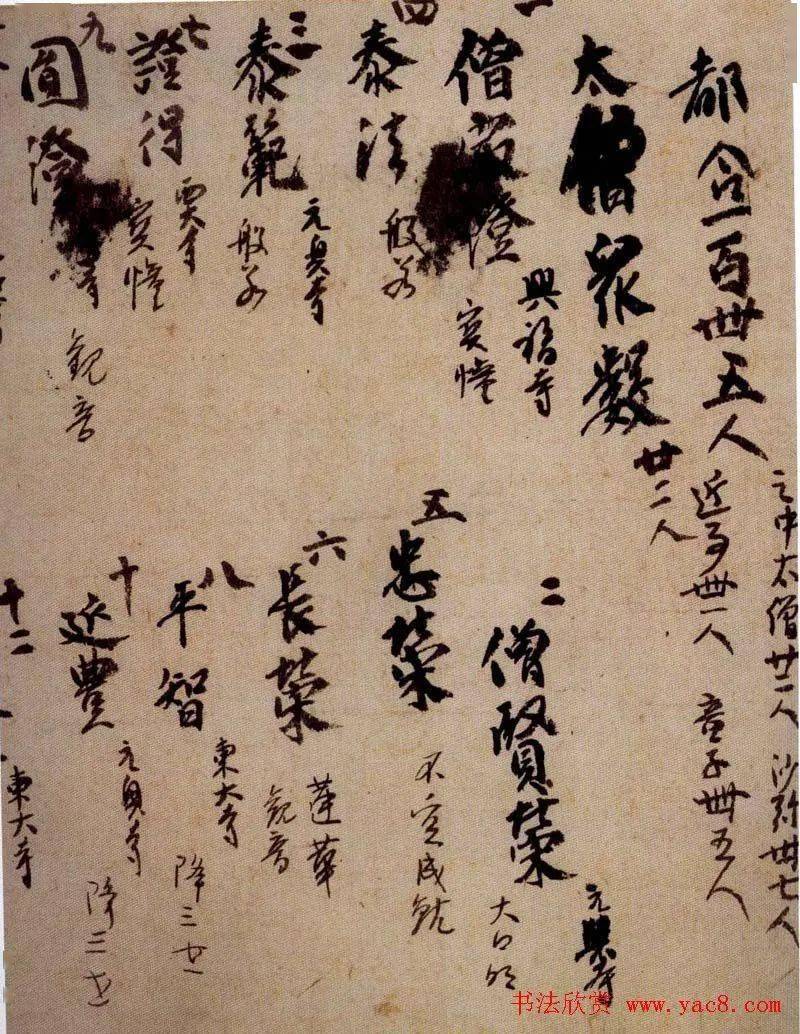 都合一百卌五人
之中太僧廿二人 沙弥卅七人
近事卌一人 童子卌五人
太僧衆數
廿二人
一
僧最澄
興福寺
宝幢
二
僧賢榮
元興寺
大日
四
泰法
般若
五
忠榮
不空成就
三
泰範
元興寺
般若
六
長榮
蓮華
観音
七
證得
宝幢
八
平智
東大寺
降三世
九
圓澄
寺
観音
十
元興寺
降三世
十二
東大寺
书法欣赏 www.yac8.com